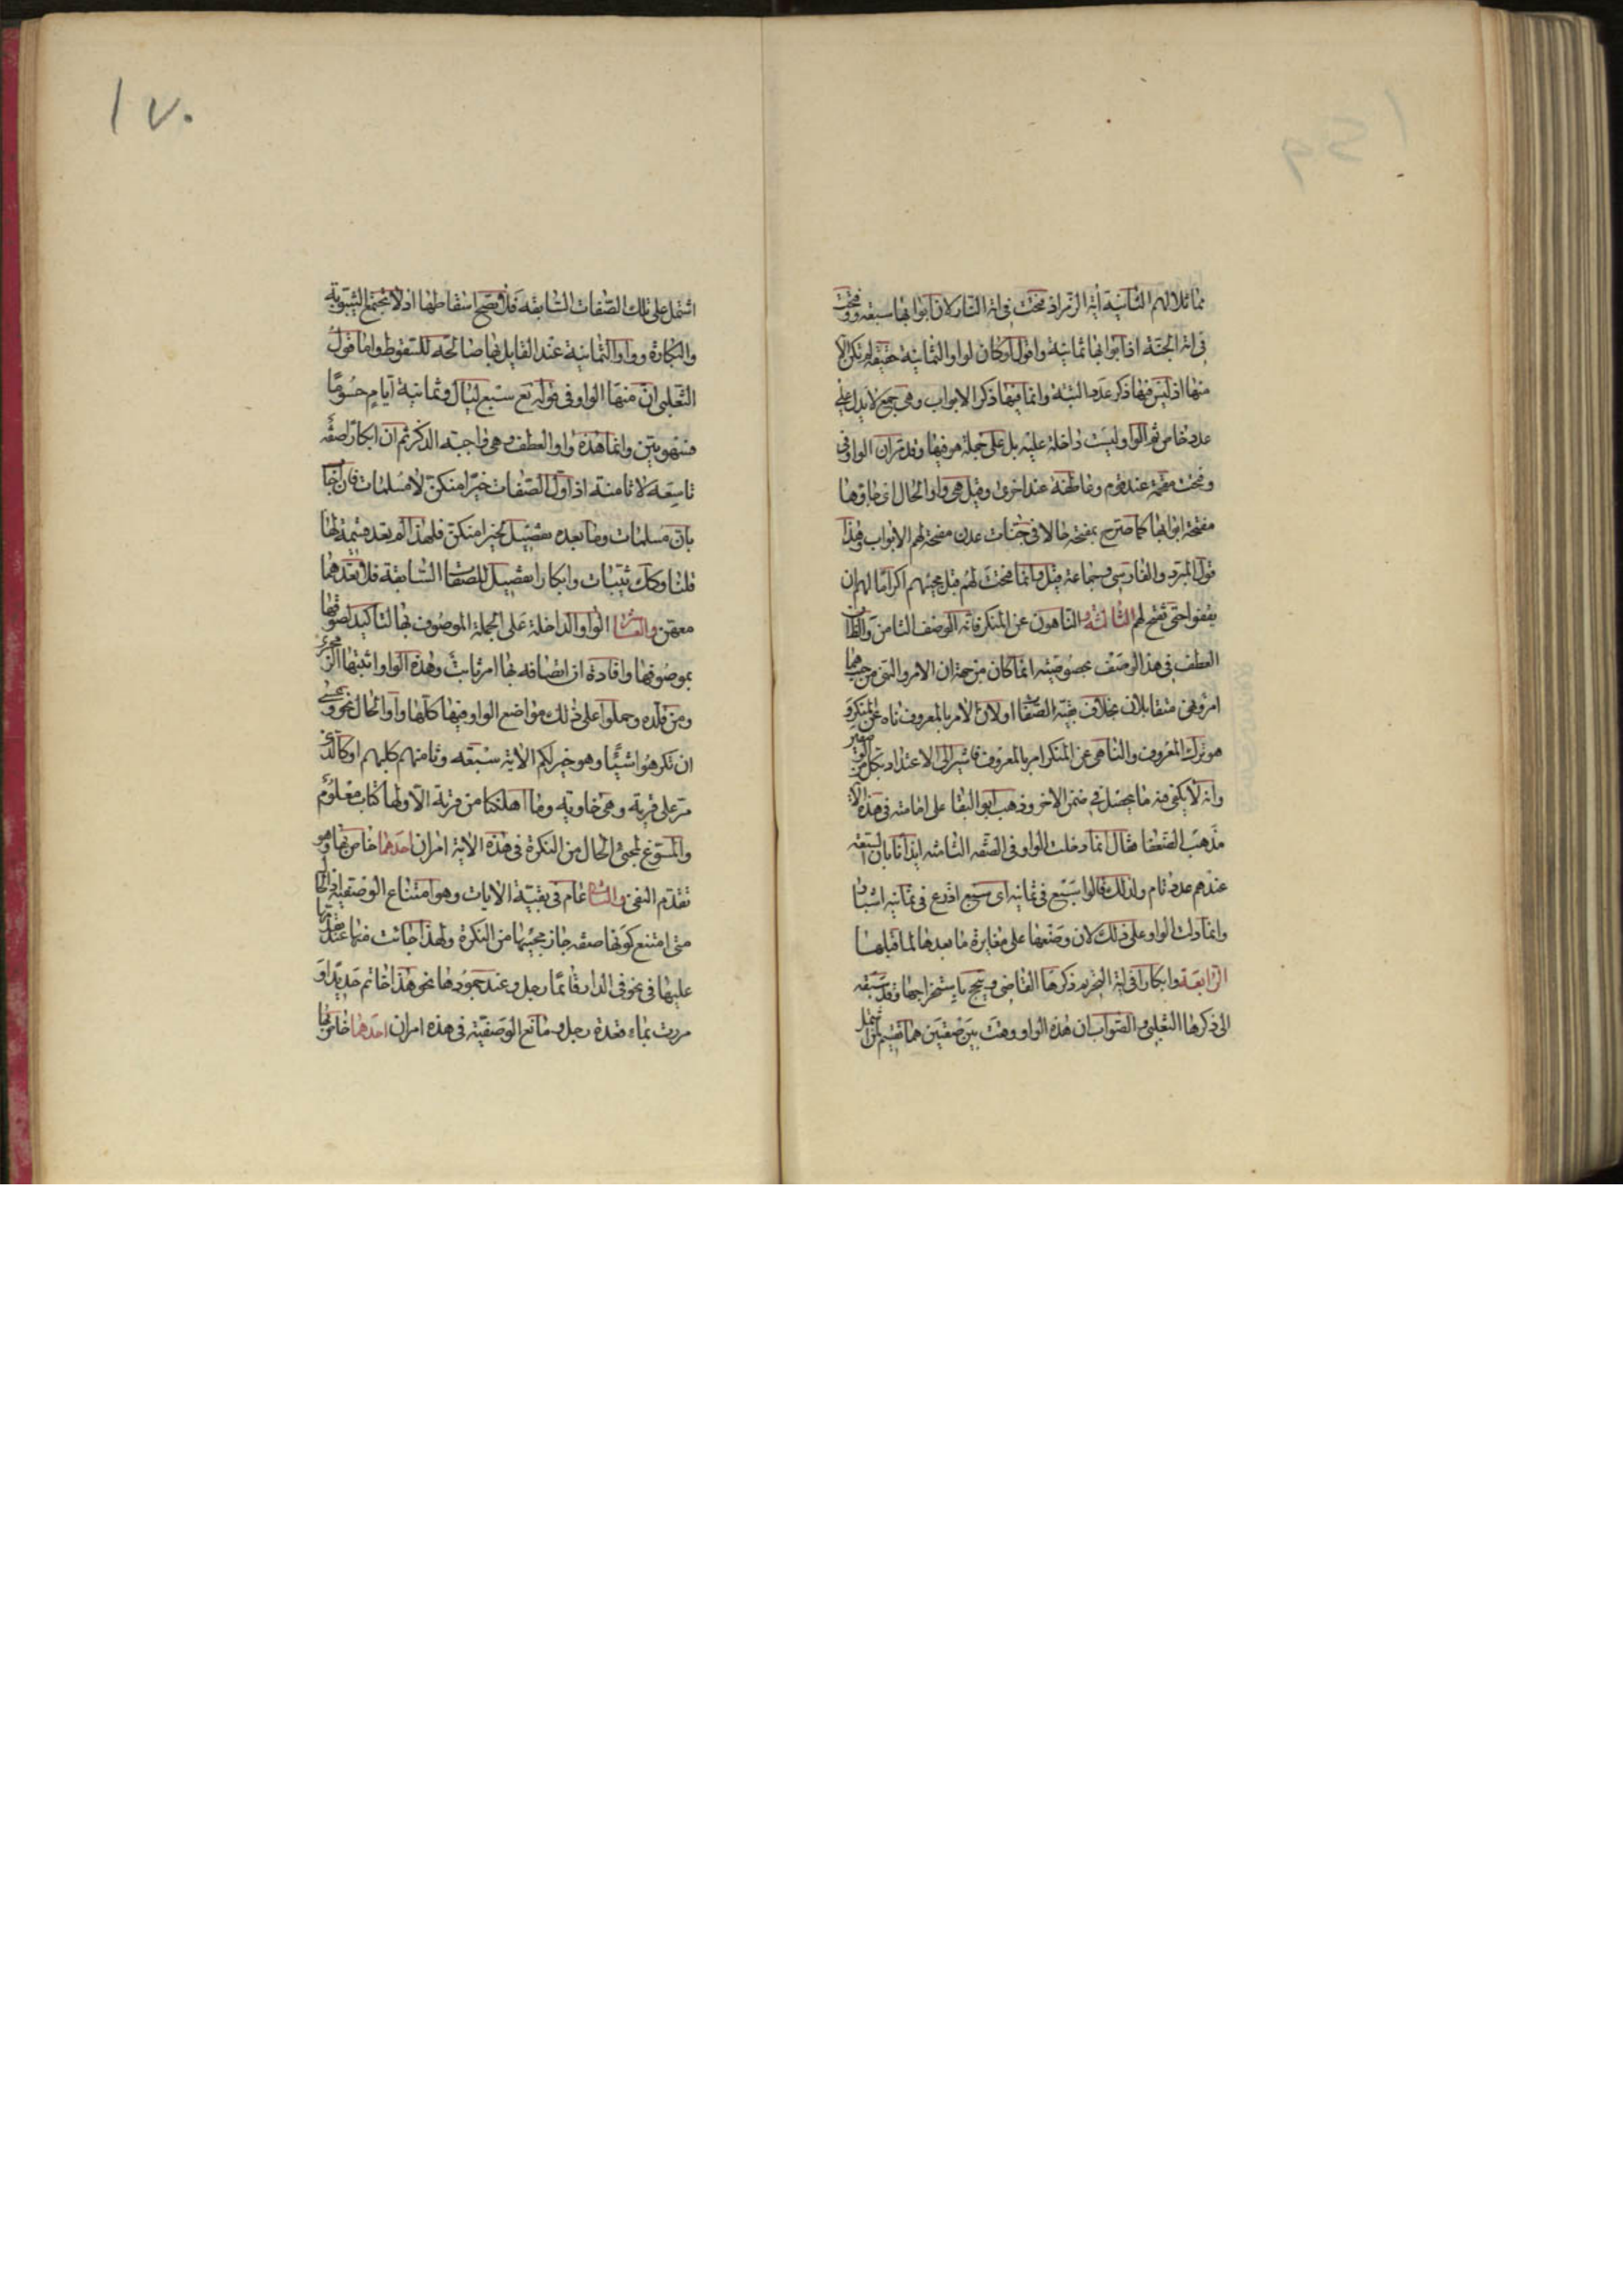 مماثلا لهم الثانية آية الزمر اذ فتحت فى آية النار لان ابوابها سبعة وفتحت
فى آية الجنة اذ ابوابها ثمانية واقول لو كان لواو الثمانية حقيقة لم تكن الآية
منها اذ ليس فيها ذكر عدد البتة وانما فيها ذكر الابواب وهى جمع لا يدل على
عدد خاص ثم الواو ليست داخلة عليه بل على جملة هو فيها وقد مر ان الواو فى
وفتحت مقحمة عند قوم وعاطفة عند اخرين وقيل هى واو الحال اى جاؤها
مفتحة ابوابها كما صرح بمفتحة حالا فى جنات عدن مفتحة لهم الابواب وهذا
قول المبرد والفارسى وجماعة قيل وانما فتحت لهم قبل مجيئهم اكراما لهم ان
يقفوا حتى تفتح لهم الثالثة والناهون عن المنكر فانه الوصف الثامن والظاهر ان
العطف فى هذا الوصف بخصوصيته انما كان من جهة ان الامر والنهى من حيث هما
امر ونهى متقابلان بخلاف بقية الصفات او لان الامر بالمعروف ناه عن المنكر و
هو ترك المعروف والناهى عن المنكر امر بالمعروف فاشير الى الاعتداد بكل من الوصفين
وانه لا يكفى فيه ما يحصل فى ضمن الاخر وذهب ابو البقا على امامته فى هذه الآية
مذهب الضعفا فقال انما دخلت الواو فى الصفة الثامنة ايذانا بان السبعة
عندهم عدد تام ولذلك قالوا سبع فى ثمانية اى سبع اذرع فى ثمانية اشبار
وانما دلت الواو على ذلك لان وضعها على مغايرة ما بعدها لما قبلها
الرابعة وابكارا فى آية التحريم ذكرها القاضى وتبجح باستخراجها وقد سبقه
الى ذكرها الثعلبى والصواب ان هذه الواو وقعت بين صفتين هما تقسيم لمن
اشتمل على تلك الصفات السابقة فلا يصح اسقاطها اذ لا تجتمع الثيوبة
والبكارة وواو الثمانية عند القايل بها صالحة للسقوط واما قول
الثعلبى ان منها الواو فى قوله تع سبع ليال وثمانية ايام حسوما
فسهو بين وانما هذه واو العطف وهى واجبة الذكر ثم ان ابكارا صفة
تاسعة لا ثامنة اذ اول الصفات خيرا منكن لا مسلمات فان اجاب
بان مسلمات وما بعده تفصيل لخيرا منكن فلهذا لم تعد قسيمة لها
قلنا وكذلك ثيبات وابكارا تفصيل للصفات السابقة فلا تعدهما
معهن والعاشر الواو الداخلة على الجملة الموصوف بها لتاكيد لصوقها
بموصوفها وافادة ان اتصافه بها امر ثابت وهذه الواو اثبتها الزمخشرى
ومن قلده وحملوا على ذلك مواضع الواو فيها كلها واو الحال نحو وعسى
ان تكرهوا شيئا وهو خير لكم الاية سبعة وثامنهم كلبهم او كالذى
مر على قرية وهى خاوية وما اهلكنا من قرية الا ولها كتاب معلوم
والمسوغ لمجئ الحال من النكرة فى هذه الآية امران احدهما خاص بها وهو
تقدم النفى والثانى عام فى بقية الآيات وهو امتناع الوصفية اذ الحال
متى امتنع كونها صفة جاز مجيئها من النكرة ولهذا جاءت منها عند تقدمها
عليها فى نحو فى الدار قائما رجل وعند جمودها نحو هذا خاتم حديدا و
مررت بماء قعدة رجل ومانع الوصفية فى هذه امران احدهما خاص بها
١٧٠